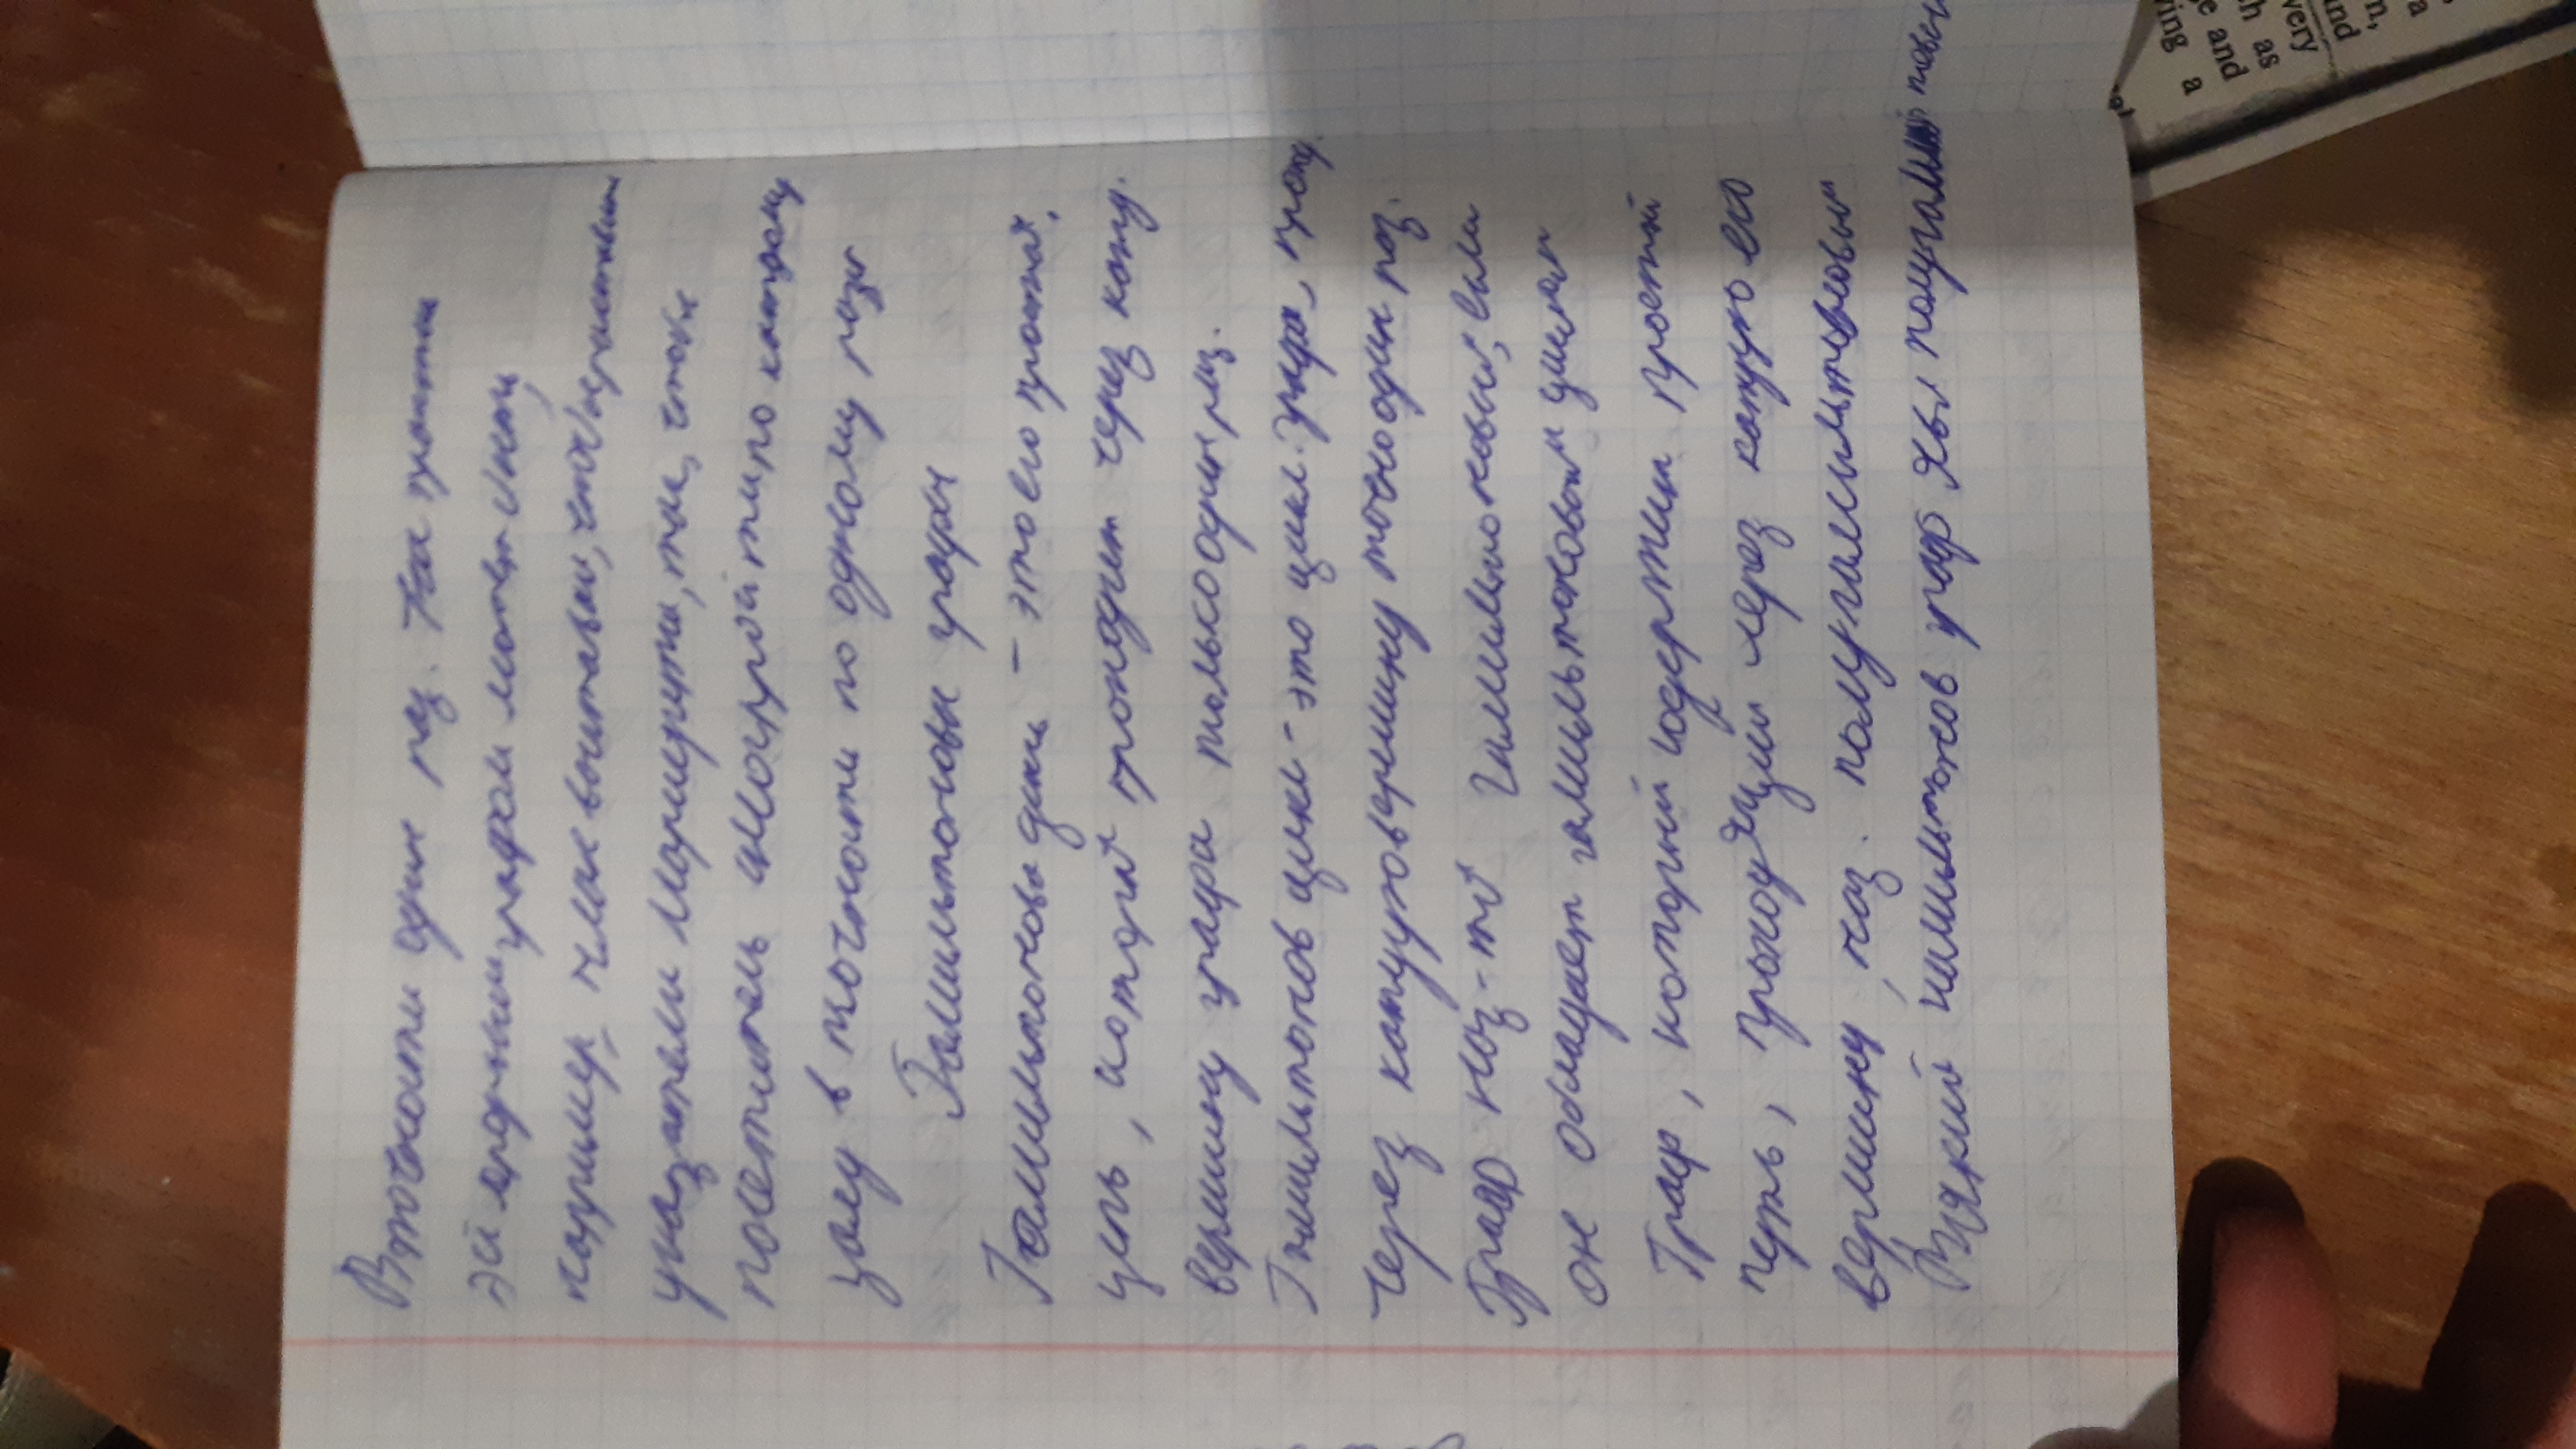 В точности один раз. На практике
Эйлеровым графом может быть,
например, план выставки, чтобы расставить
указатели маршрута, так, чтобы
посетитель смог пройти по каждому
залу в точности по одному разу
Гамильтоновы графы
Гамильтонова цепь – это его простая
цепь, которая проходит через кажд.
вершину графа только один раз.
Гамильтонов цикл – это цикл графа, проход.
через каждую вершину точно один раз.
Граф наз-тся гамильтоновым, если
он обладает гамильтоновым циклом
Граф, который содержит простой
путь, проходящий через каждую его
вершину, наз. полугамильтоновым
Всякий гамильтонов граф явл